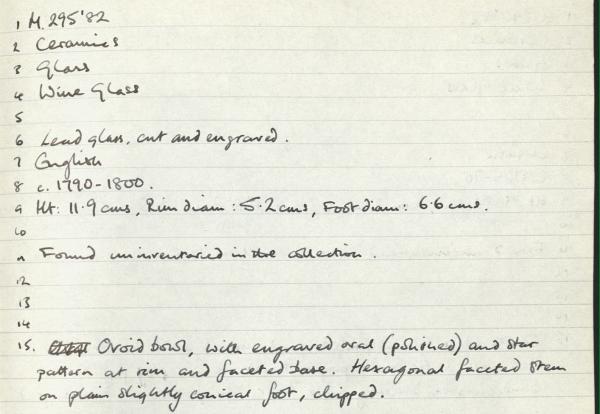 1 M. 295'82
2 Ceramics
3 Glass
4 Wine Glass
5
6 Lead glass, cut and engraved.
7 English
8 c. 1790-1800.
9 Ht: 11.9 cms, Rim diam: 5.2 cms, Foot diam: 6.6 cms.
10
11 Found uninventaried in the collection.
12
13
14
15. Ovoid bowl, with engraved oval (polished) and star
pattern at rim and faceted base. Hexagonal faceted stem
on plain slightly conical foot, chipped.